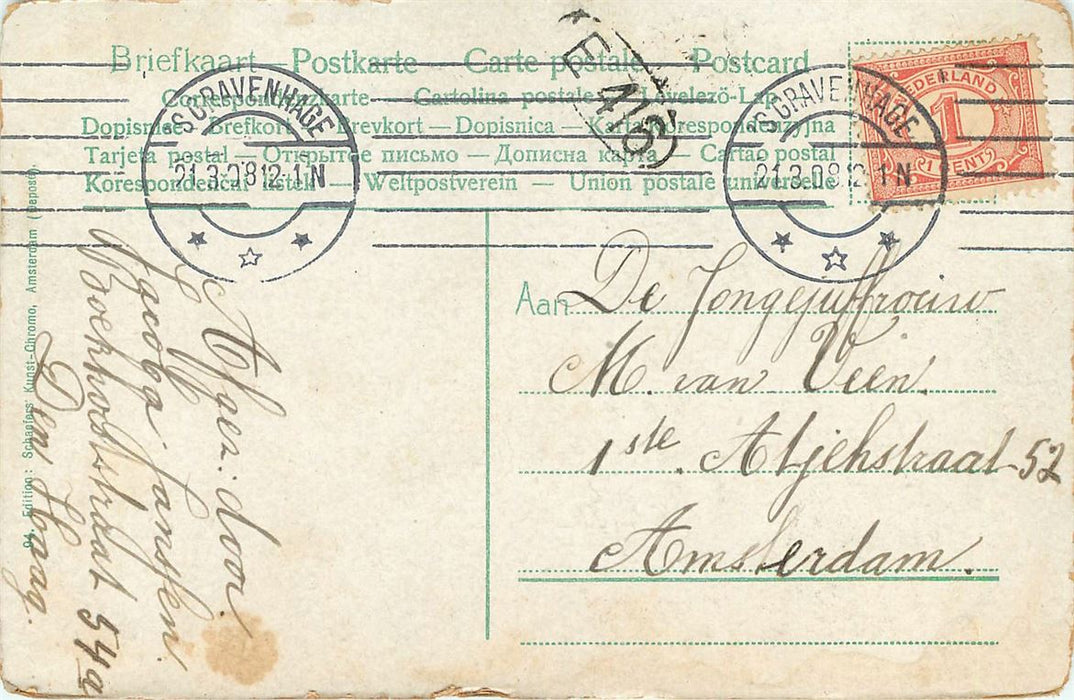 Briefkaart — Postkarte — Carte postale — Postcard
Correspondenzkarte — Cartolina postale — Levelező-Lap
Dopisnice — Brefkort — Brevkort — Dopisnica — Karta korespondenzyjna
Tarjeta postal — Открытое письмо — Дописна карта — Cartao postal
Korespondencni listek — Weltpostverein — Union postale universelle
'S GRAVENHAGE
21.3.08 12-1N
'S GRAVENHAGE
21.3.08 12-1N
E
416
NEDERLAND
1
1 CENT
Aan
De Jongejuffrouw
M. van Veen.
1ste Atjehstraat 52
Amsterdam.
Afz. door.
Jacoba Janssen.
Boekhorststraat 54a
Den Haag.
94. Edition: Schaefers' Kunst-Chromo, Amsterdam (Deposé).